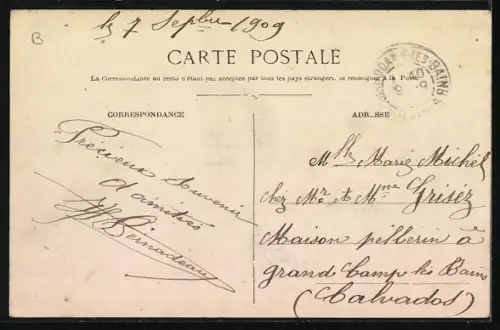 B
le 7 Sepbre 1909
CARTE POSTALE
La Correspondance au recto n'étant pas acceptée par tous les pays étrangers, se renseigner à la Poste
LES BAINS
CORRESPONDANCE
ADRESSE
Précieux Souvenir
d'amitiés
Bernadeau
Mlle Marie Michel
chez Mr et Mme Griséz
Maison pellerin à
grand Camp les Bains
(Calvados)